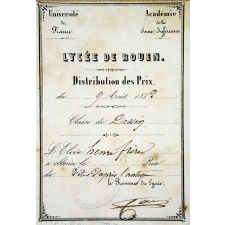 Université
de
France
Académie
de la
Seine Inférieure
LYCÉE DE ROUEN.
Distribution des Prix.
du 9 Août 1852
Classe de Dessin
L'Elève henri frère
a obtenu le Prix
de
Le Proviseur du Lycée,